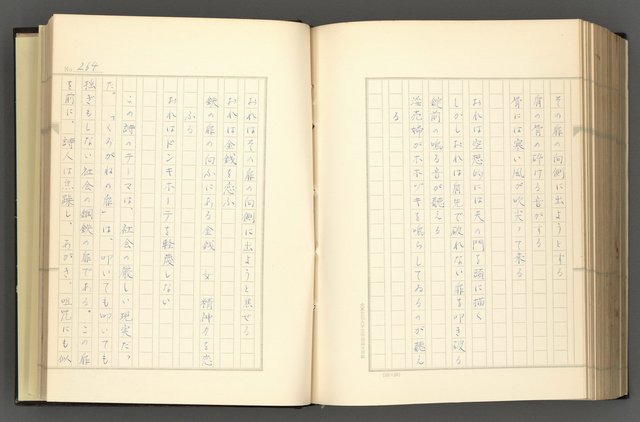 その扉の向側に出ようとする
肩の骨の砕ける音がする
骨には寒い風が吹尖って来る
おれは空想的には天の門を頭に描く
しかしおれは肩先で破れない扉を叩き破る
錠前の鳴る音が聴える
淫売婦がホホヅキを鳴らしてゐるのが聴え
る
No. 264
おれはその扉の向側に出ようと焦せる
おれは金銭を恋ふ
鉄の扉の向ふにある金銭 女 精神力を恋
ふる
おれはドンキホーテを軽蔑しない
この詩のテーマは、社会の厳しい現実だっ
た。「くろがねの扉」は、叩いても叩いても
揺ぎもしない社会の鋼鉄の扉である。この扉
を前に、詩人は焦躁し、あがき、咀咒にも似